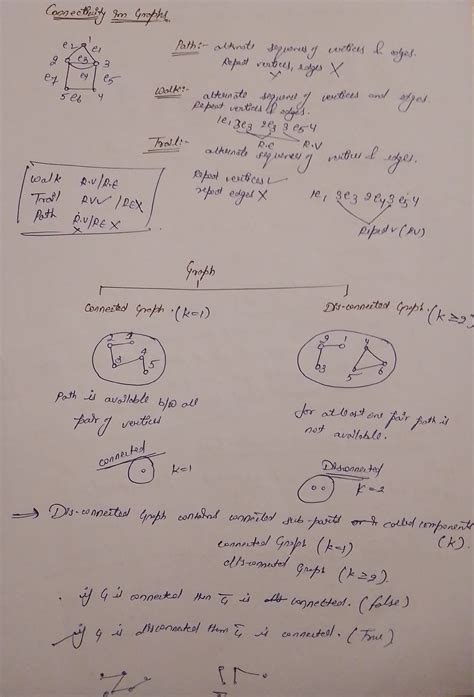 Connectivity in Graphs
e2 1 e1
2 e3 3
e7 e4 e5
5 e6 4
Path:- alternate sequence of vertices & edges.
Repeat vertices, edges X
Walk:- alternate sequence of vertices and edges.
Repeat vertices & edges.
1e1 3e3 2e3 3 e5 4
R.E R.V
Trail:- alternate sequence of vertices & edges.
Repeat vertices ✓
repeat edges X
1e1 3e3 2e4 3e5 4
Repeat v (RV)
Walk R.V/R.E
Trail RV✓/REX
Path R.V/R.E X
X
Graph
Connected Graph. (k=1)
Dis-connected Graph. (k≥2)
2 1
3 4
5
2 1 4
3 5 6
Path is available b/w all
pair of vertices
for atleast one pair path is
not available.
connected
k=1
Disconnected
k=2
⇒ Dis-connected Graph contains connected sub-parts is called components
(k).
connected Graph (k=1)
disconnected Graph (k≥2).
. if G is connected then G̅ is connected. (false)
if G is disconnected then G̅ is connected. (True)